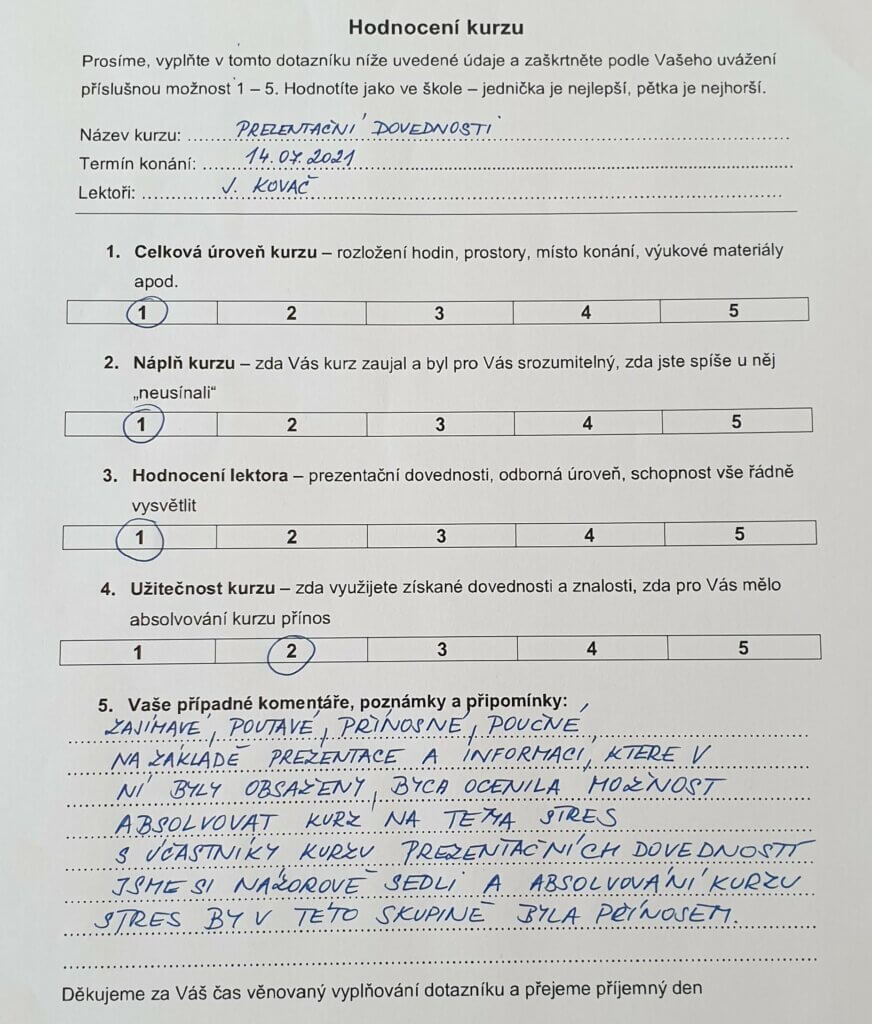 Hodnocení kurzu
Prosíme, vyplňte v tomto dotazníku níže uvedené údaje a zaškrtněte podle Vašeho uvážení
příslušnou možnost 1 – 5. Hodnotíte jako ve škole – jednička je nejlepší, pětka je nejhorší.
Název kurzu: PREZENTAČNÍ DOVEDNOSTI
Termín konání: 14.07.2021
Lektoři: J. KOVAČ
1. Celková úroveň kurzu – rozložení hodin, prostory, místo konání, výukové materiály
apod.
1 2 3 4 5
2. Náplň kurzu – zda Vás kurz zaujal a byl pro Vás srozumitelný, zda jste spíše u něj
„neusínali“
1 2 3 4 5
3. Hodnocení lektora – prezentační dovednosti, odborná úroveň, schopnost vše řádně
vysvětlit
1 2 3 4 5
4. Užitečnost kurzu – zda využijete získané dovednosti a znalosti, zda pro Vás mělo
absolvování kurzu přínos
1 2 3 4 5
5. Vaše případné komentáře, poznámky a připomínky:
ZAJÍMAVÉ, POUTAVÉ, PŘÍNOSNÉ, POUČNÉ
NA ZÁKLADĚ PREZENTACE A INFORMACÍ, KTERÉ V
NÍ BYLY OBSAŽENY, BYCH OCENILA MOŽNOST
ABSOLVOVAT KURZ NA TÉMA STRES
S ÚČASTNÍKY KURZU PREZENTAČNÍCH DOVEDNOSTÍ
JSME SI NÁZOROVĚ SEDLI A ABSOLVOVÁNÍ KURZU
STRES BY V TÉTO SKUPINĚ BYLA PŘÍNOSEM.
Děkujeme za Váš čas věnovaný vyplňování dotazníku a přejeme příjemný den